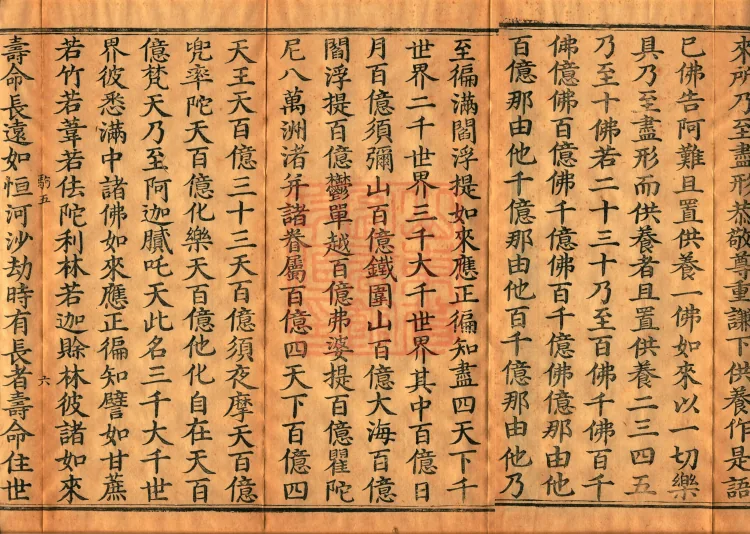 來所乃至盡形恭敬尊重謙下供養作是語
已佛告阿難且置供養一佛如來以一切樂
具乃至盡形而供養者且置供養二三四五
乃至十佛若二十三十乃至百佛千佛百千
佛億佛百億佛千億佛百千億佛億那由他
百億那由他千億那由他百千億那由他乃
至徧滿閻浮提如來應正徧知盡四天下千
世界二千世界三千大千世界其中百億日
月百億須彌山百億鐵圍山百億大海百億
閻浮提百億鬱單越百億弗婆提百億瞿陀
尼八萬洲渚并諸眷屬百億四天下百億四
天王天百億三十三天百億須夜摩天百億
兜率陀天百億化樂天百億他化自在天百
億梵天乃至阿迦膩吒天此名三千大千世
界彼悉滿中諸佛如來應正徧知譬如甘蔗
若竹若葦若佉陀利林若迦賒林彼諸如來
五 六
壽命長遠如恒河沙劫時有長者壽命住世